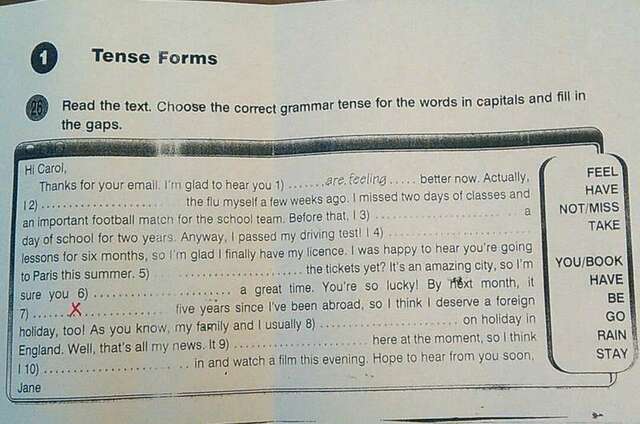 1 Tense Forms
26 Read the text. Choose the correct grammar tense for the words in capitals and fill in
the gaps.
Hi Carol,
Thanks for your email. I'm glad to hear you 1) .......are feeling..... better now. Actually,
I 2) ........................... the flu myself a few weeks ago. I missed two days of classes and
an important football match for the school team. Before that, I 3) ........................... a
day of school for two years. Anyway, I passed my driving test! I 4) ...........................
lessons for six months, so I'm glad I finally have my licence. I was happy to hear you're going
to Paris this summer. 5) ........................... the tickets yet? It's an amazing city, so I'm
sure you 6) ........................... a great time. You're so lucky! By next month, it
7) ......X............... five years since I've been abroad, so I think I deserve a foreign
holiday, too! As you know, my family and I usually 8) ........................... on holiday in
England. Well, that's all my news. It 9) ........................... here at the moment, so I think
I 10) ........................... in and watch a film this evening. Hope to hear from you soon,
Jane
FEEL
HAVE
NOT/MISS
TAKE
YOU/BOOK
HAVE
BE
GO
RAIN
STAY